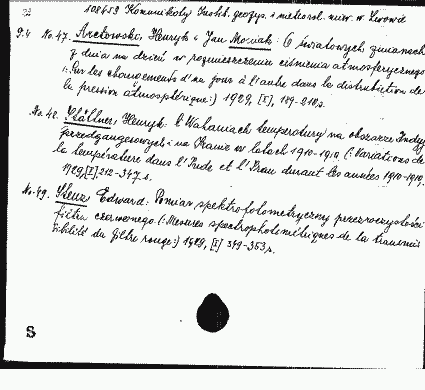 108459 Komunikaty Instit. geofiz. i meteorol. uniw. w Lwowie
No. 47. Arctowski, Henryk i Jan Moniak: O światowych zmianach
z dnia na dzień w rozmieszczeniu ciśnienia atmosferycznego
(: Sur les changements d'un jour à l'autre dans la distribution de
la pression atmosphérique:) 1929, [I], 189-210 s.
No. 48. Henryk: Wahaniach temperatury na obszarze Indyj
przedgangesowych i na Iranie w latach 1910-1919 (: Variations de
la température dans l'Inde et l'Iran durant les années 1910-1919,
1929, [I], 212-347 s.
No. 49. Stenz Edward: Pomiar spektrofotometryczny przezroczystości
filtru czerwonego (: Mesures spectrophotométriques de la transmis
sibilité du filtre rouge:) 1929, [I] 349-353 s.
S